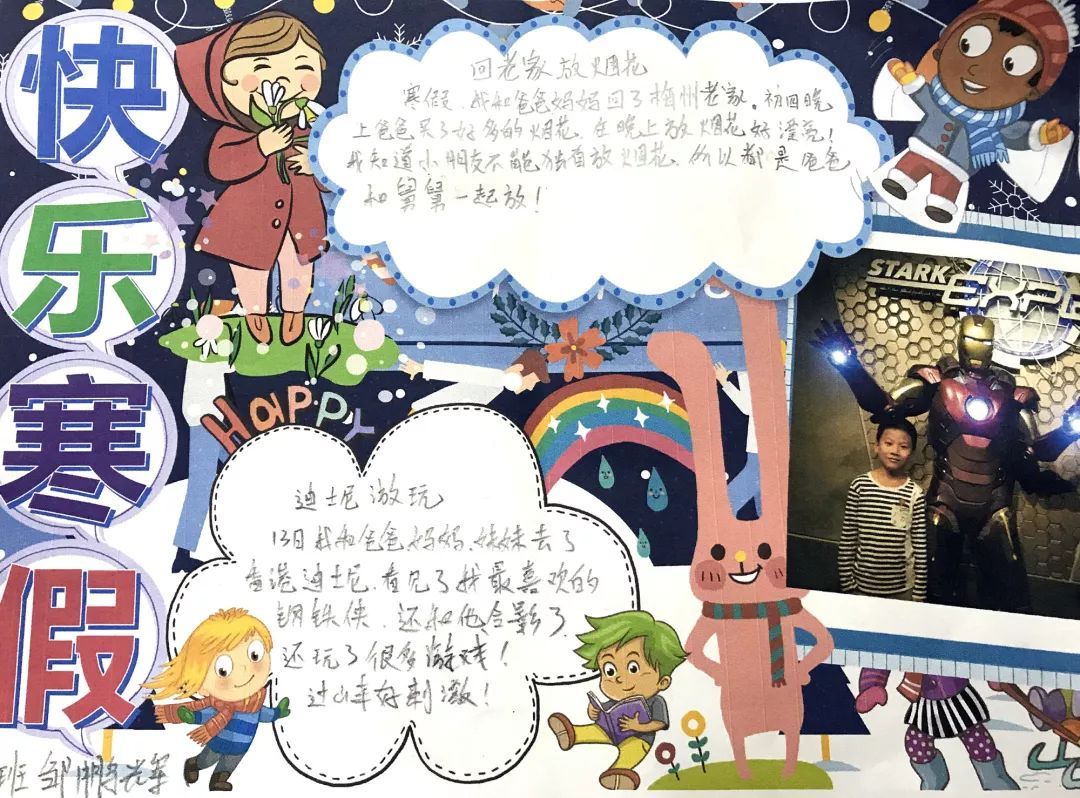 快
乐
寒
假
回老家放烟花
寒假,我和爸爸妈妈回了梅州老家。初四晚
上爸爸买了好多的烟花,在晚上放烟花好漂亮!
我知道小朋友不能独自放烟花,所以都是爸爸
和舅舅一起放!
STARK
EXPO
HAPPY
迪士尼游玩
13日我和爸爸妈妈、妹妹去了
香港迪士尼,看见了我最喜欢的
钢铁侠,还和他合影了,
还玩了很多游戏!
过山车好刺激!
班 邹鹏